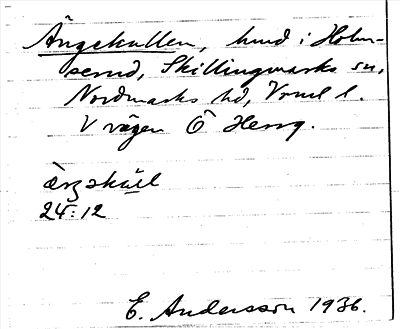 Ängekullen, hund i Holm-
serud, Skillingmarks sn,
Nordmarks hd, Vrml l.
V vägen Ö Herrg.
24:12
E. Andersson 1936.